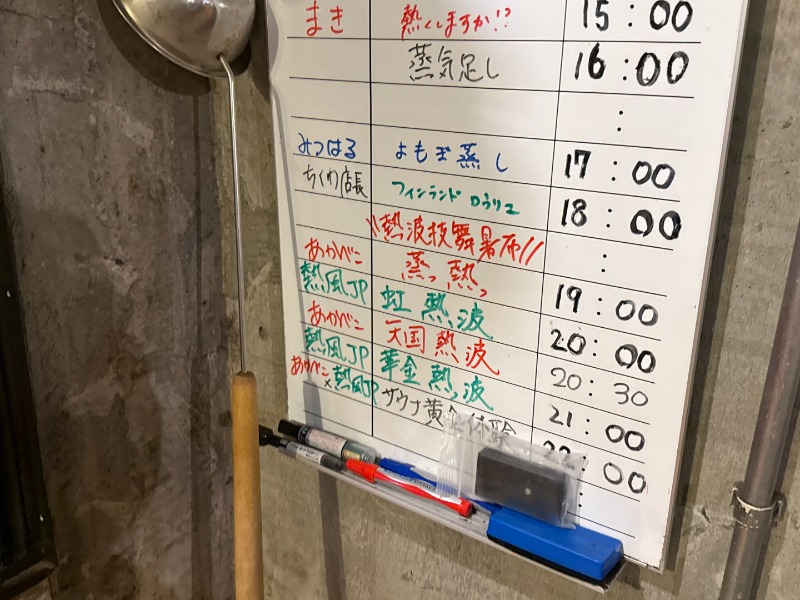 まき 熱くしますか!? 15:00
蒸気足し 16:00
:
みつはる よもぎ蒸し 17:00
ちくわ店長 フィンランド ロウリュ 18:00
\\熱波技舞暑布// :
あかべこ 蒸っ熱っ 19:00
熱風JP 虹熱波 20:00
あかべこ 天国熱波 20:30
熱風JP 華金熱波 21:00
あかべこ×熱風JP サウナ黄金体験 22:00
: